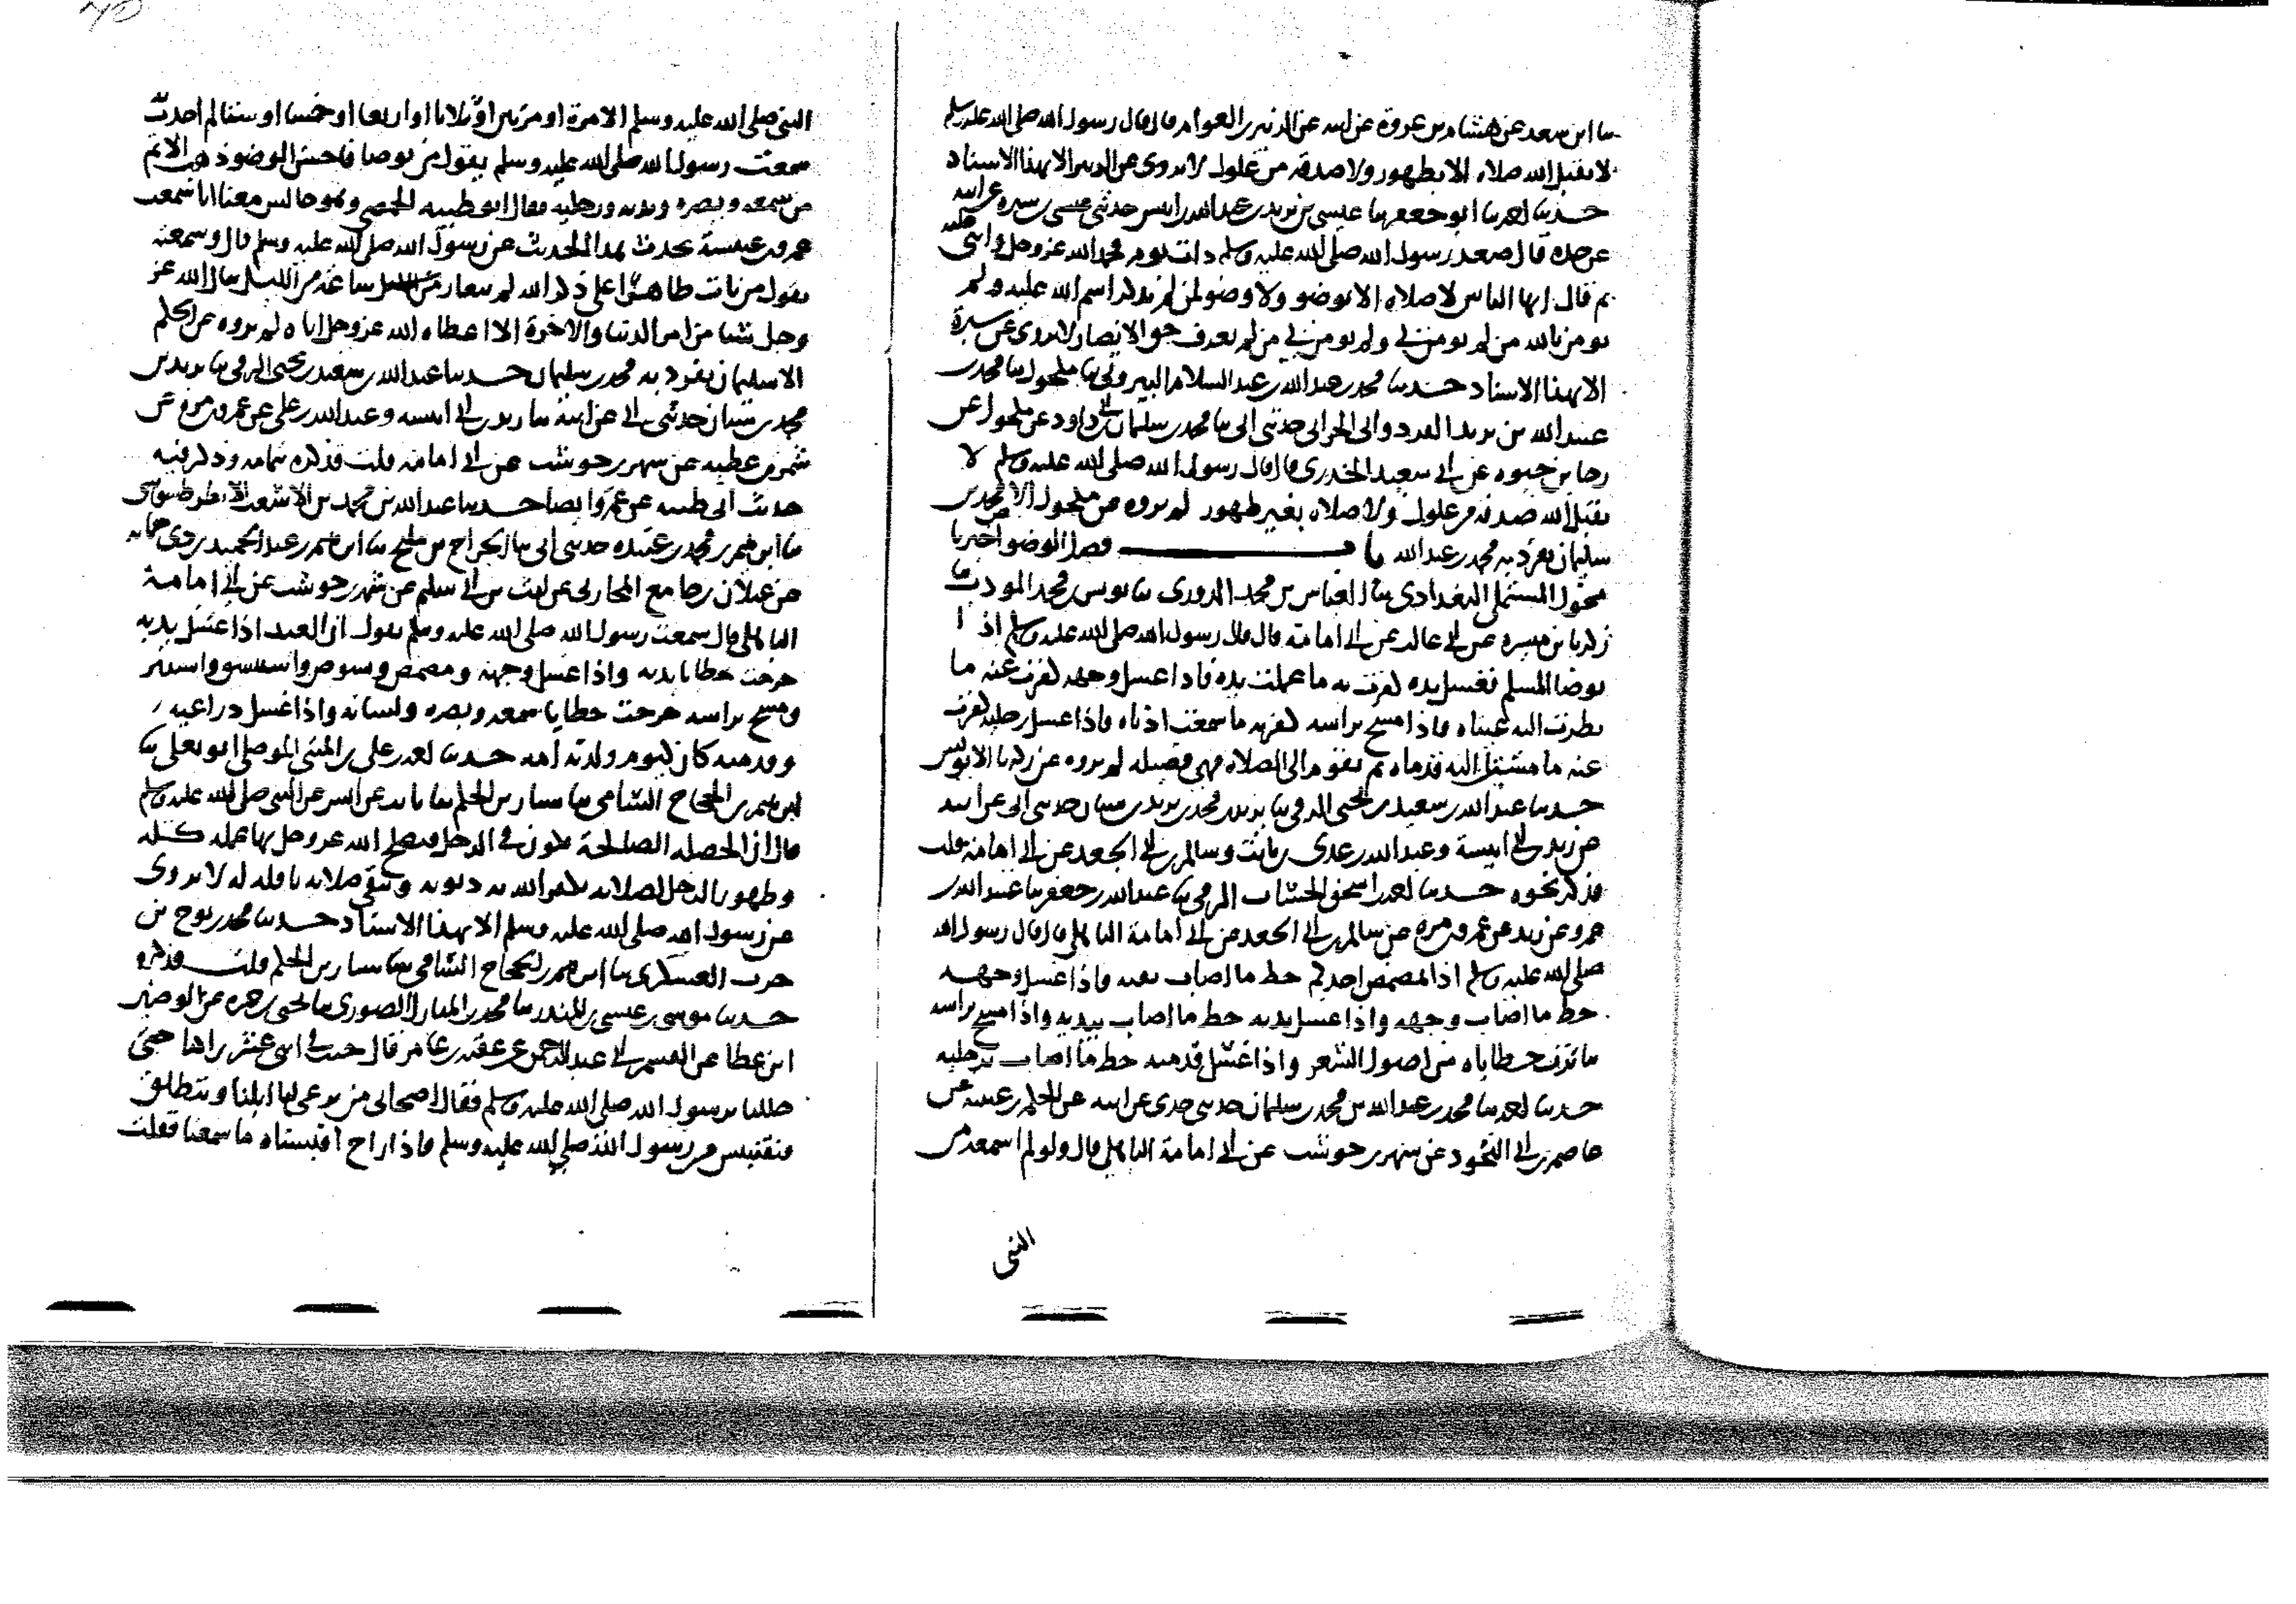 ثنا ابن سعد عن هشام بن عروة عن ابيه عن الزبير بن العوام قال قال رسول الله صلى الله عليه وسلم
لا يقبل الله صلاه الا بطهور ولا صدقه من غلول لا يروى عن الزبير الا بهذا الاسناد
حدثنا احمد ثنا ابو جعفر ثنا عيسى بن يزيد بن عبد الله بن انيس حدثني عيسى بن سبره عن ابيه
عن جده قال صعد رسول الله صلى الله عليه وسلم ذات يوم فحمد الله عز وجل واثنى عليه
ثم قال ايها الناس لا صلاه الا بوضو ولا وضو لمن لم يذكر اسم الله عليه ولم
يومن بالله من لم يومن بي ولم يومن بي من لم يعرف حق الانصار لا يروى عن سبرة
الا بهذا الاسناد حدثنا محمد بن عبد الله بن عبد السلام البيروتي ثنا مكحول ثنا محمد بن
عبد الله بن يزيد القردواني الحراني حدثني ابي ثنا محمد بن سليمان بن ابي داود عن مكحول عن
رجا بن حيوه عن ابي سعيد الخدري قال قال رسول الله صلى الله عليه وسلم لا
يقبل الله صدقه من غلول ولا صلاه بغير طهور لم يروه عن مكحول الا محمد بن
سليمان تفرد به محمد بن عبد الله باب فضل الوضو اخبرنا
مخول المستملي البغدادي ثنا العباس بن محمد الدوري ثنا يونس بن محمد المودب ثنا
زكريا بن ميسره عن ابي غالب عن ابي امامة قال قال رسول الله صلى الله عليه وسلم اذا
توضا المسلم فغسل يده كفرت به ما عملت يده فاذا غسل وجهه كفرت عنه ما
نظرت اليه عيناه فاذا مسح براسه كفر به ما سمعت اذناه فاذا غسل رجليه كفرت
عنه ما مشت اليه قدماه ثم يقوم الى الصلاه فهي فضيله لم يروه عن زكريا الا يونس
حدثنا عبد الله بن سعيد بن يحيى الرقي ثنا يزيد بن محمد بن يزيد بن سنان حدثني ابي عن ابيه
عن زيد بن ابي انيسة وعبد الله بن عدي بن ثابت وسالم بن ابي الجعد عن ابي امامة قلت
فذكر نحوه حدثنا احمد بن اسحق الخشاب الرقي ثنا عبد الله بن جعفر ثنا عبيد الله بن
عمرو عن زيد عن عمرو بن مرة عن سالم بن ابي الجعد عن ابي امامة الباهلي قال قال رسول الله
صلى الله عليه وسلم اذا تمضمض احدكم حط ما اصاب بفيه واذا غسل وجهه
حط ما اصاب وجهه واذا غسل يديه حط ما اصاب بيديه واذا مسح براسه
تناثرت خطاياه من اصول الشعر واذا غسل قدميه حط ما اصاب برجليه
حدثنا احمد ثنا محمد بن عبد الله بن محمد بن سليمان حدثني جدي عن ابيه عن الحكم بن عتيبة عن
عاصم بن ابي النجود عن شهر بن حوشب عن ابي امامة الباهلي قال ولو لم اسمعه من
النبي
النبي صلى الله عليه وسلم الا مرة او مرتين او ثلاثا او اربعا او خمسا او ستا لم احدث
سمعت رسول الله صلى الله عليه وسلم يقول من توضا فاحسن الوضو ذهب الاثم
من سمعه وبصره ويديه ورجليه فقال ابو ظبيه الحمصي وهو جالس معنا انا سمعت
عمرو بن عبسة يحدث بهذا الحديث عن رسول الله صلى الله عليه وسلم قال وسمعته
يقول من بات طاهرا على ذكر الله لم يتعار من الليل ساعة من الليل يسال الله عز
وجل شيا من امر الدنيا والاخرة الا اعطاه الله عز وجل اياه لم يروه عن الحكم
الا سليمان تفرد به محمد بن سليمان حدثنا عبد الله بن سعيد بن يحيى الرقي ثنا يزيد بن
محمد بن سنان حدثني ابي عن ابيه ثنا زيد بن ابي انيسه وعبد الله بن علي عن عمرو بن مرة عن
شمر بن عطيه عن شهر بن حوشب عن ابي امامة قلت فذكره بتمامه وذكر فيه
حديث ابي ظبيه عن عمرو ايضا حدثنا عبد الله بن محمد بن الاشعث الانطرطوسي
ثنا ابراهيم بن محمد بن عبيده حدثني ابي ثنا الجراح بن مليح ثنا ابراهيم بن عبد الحميد بن ذي حمايه
عن غيلان بن جامع المحاربي عن ليث بن ابي سليم عن شهر بن حوشب عن ابي امامة
الباهلي قال سمعت رسول الله صلى الله عليه وسلم يقول ان العبد اذا غسل يديه
خرجت خطايا يديه واذا غسل وجهه ومضمض وتسوك واستنشق واستنثر
ومسح براسه خرجت خطايا سمعه وبصره ولسانه واذا غسل ذراعيه
وقدميه كان كيوم ولدته امه حدثنا احمد بن علي بن المثنى الموصلي ابو يعلى ثنا
ابراهيم بن الحجاج الشامي ثنا بشار بن الحكم ثنا ثابت عن انس عن النبي صلى الله عليه وسلم
قال ان الخصله الصالحة تكون في الرجل فيصلح الله عز وجل بها عمله كله
وطهور الرجل لصلاته يكفر الله به ذنوبه وتبقى صلاته نافله له لا يروى
عن رسول الله صلى الله عليه وسلم الا بهذا الاسناد حدثنا محمد بن نوح بن
حرب العسكري ثنا ابراهيم بن الحجاج الشامي ثنا بشار بن الحكم قلت فذكره
حدثنا موسى بن عيسى بن المنذر ثنا محمد بن المبارك الصوري ثنا يحيى بن حمزه عن الوضين
ابن عطا عن القسم ابي عبد الرحمن عن عقبه بن عامر قال جيت في اثني عشر راكبا حتى
حللنا برسول الله صلى الله عليه وسلم فقال اصحابي من يرعى لنا ابلنا وننطلق
فنقتبس من رسول الله صلى الله عليه وسلم فاذا راح اقبسناه ما سمعنا فقلت